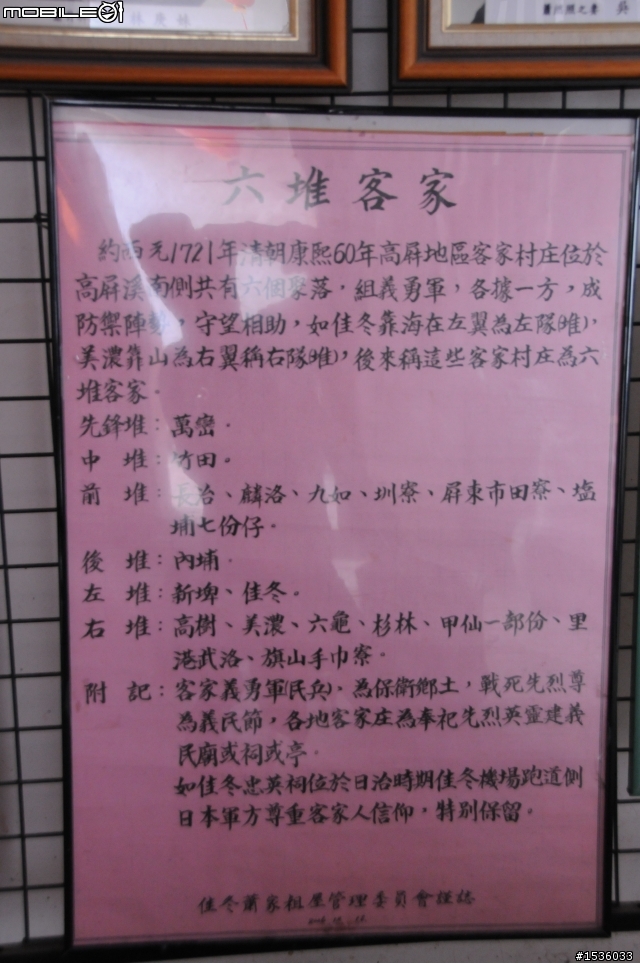 MOBILE01
林庚
蕭以順之妻 吳
六堆客家
約西元1721年清朝康熙60年高屏地區客家村庄位於
高屏溪南側共有六個聚落，組義勇軍，各據一方，成
防禦陣勢，守望相助，如佳冬靠海在左翼為左隊(堆)，
美濃靠山為右翼稱右隊(堆)，後來稱這些客家村庄為六
堆客家。
先鋒堆：萬巒．
中　堆：竹田。
前　堆：長治、麟洛、九如、圳寮、屏東市田寮、塩
埔七份仔。
後　堆：內埔．
左　堆：新埤、佳冬。
右　堆：高樹、美濃、六龜、杉林、甲仙一部份、里
港武洛、旗山手巾寮。
附　記：客家義勇軍(民兵)，為保衛鄉土，戰死先烈尊
為義民節，各地客家庄為奉祀先烈英靈建義
民廟或祠或亭．
如佳冬忠英祠位於日治時期佳冬機場跑道側
日本軍方尊重客家人信仰，特別保留。
佳冬蕭家祖屋管理委員會謹誌
#1536033